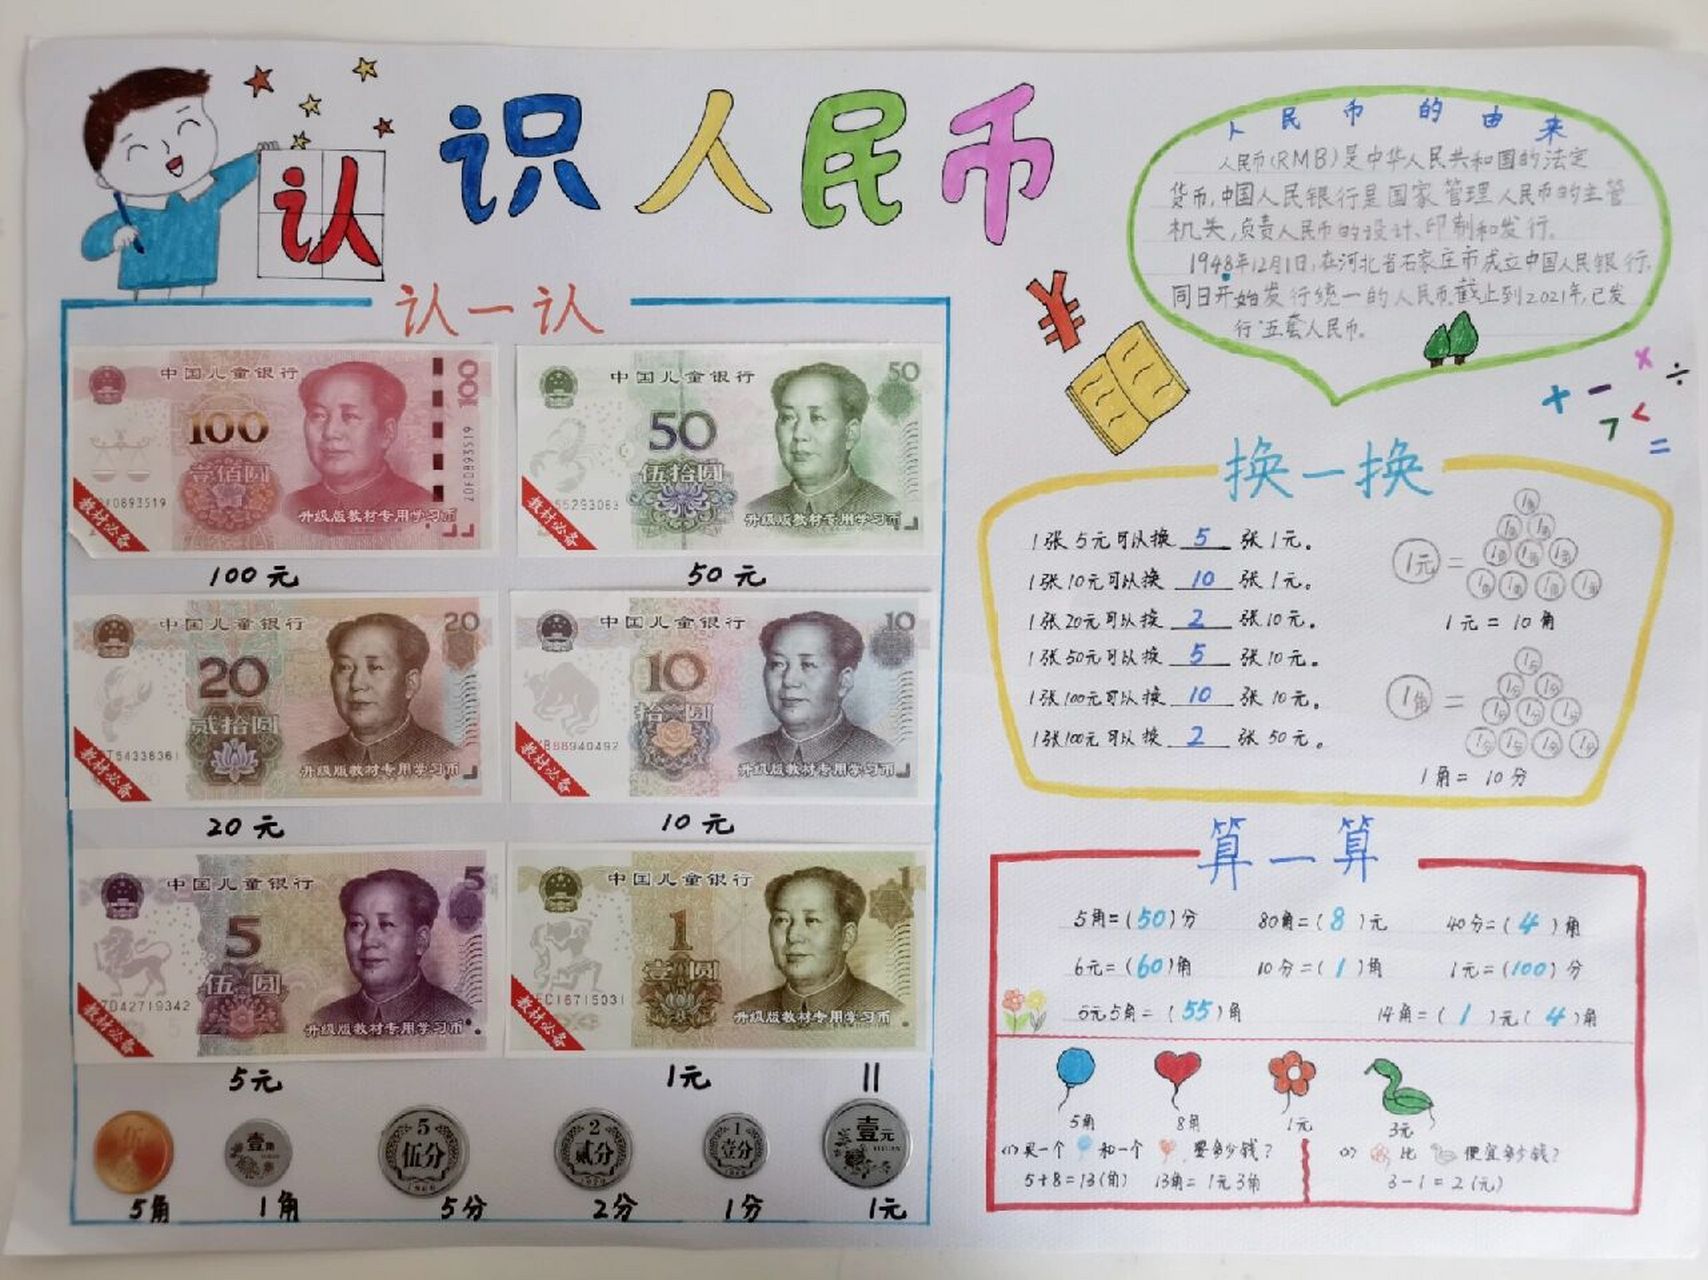 认识人民币
认一认
中国儿童银行
100
100
壹佰圆
20F0893519
升级版教材专用学习币
教材必备
100元
中国儿童银行
50
50
伍拾圆
升级版教材专用学习币
教材必备
50元
中国儿童银行
20
20
贰拾圆
升级版教材专用学习币
教材必备
20元
中国儿童银行
10
10
拾圆
88940492
升级版教材专用学习币
教材必备
10元
中国儿童银行
5
5
伍圆
42719342
升级版教材专用学习币
教材必备
5元
中国儿童银行
1
1
壹圆
升级版教材专用学习币
教材必备
1元
伍
5角
壹角
1角
5
伍分
5分
2
贰分
2分
1
壹分
1分
壹元
1元
人民币的由来
人民币(RMB)是中华人民共和国的法定
货币,中国人民银行是国家管理人民币的主管
机关,负责人民币的设计、印制和发行。
1948年12月1日,在河北省石家庄市成立中国人民银行,
同日开始发行统一的人民币.截止到2021年,已发
行五套人民币。
¥
+ - × ÷
> < =
换一换
1张5元可以换 5 张1元。
1张10元可以换 10 张1元。
1张20元可以换 2 张10元。
1张50元可以换 5 张10元。
1张100元可以换 10 张10元。
1张100元可以换 2 张50元。
1元 =
1角
1角 1角
1角 1角 1角
1角 1角 1角 1角
1元 = 10角
1角 =
1分
1分 1分
1分 1分 1分
1分 1分 1分 1分
1角 = 10分
算一算
5角=(50)分 80角=(8)元 40分=(4)角
6元=(60)角 10分=(1)角 1元=(100)分
5元5角=(55)角 14角=(1)元(4)角
5角 8角 1元 3元
(1)买一个 和一个 要多少钱?
5+8=13(角) 13角=1元3角
(2) 比 便宜多少钱?
3-1=2(元)